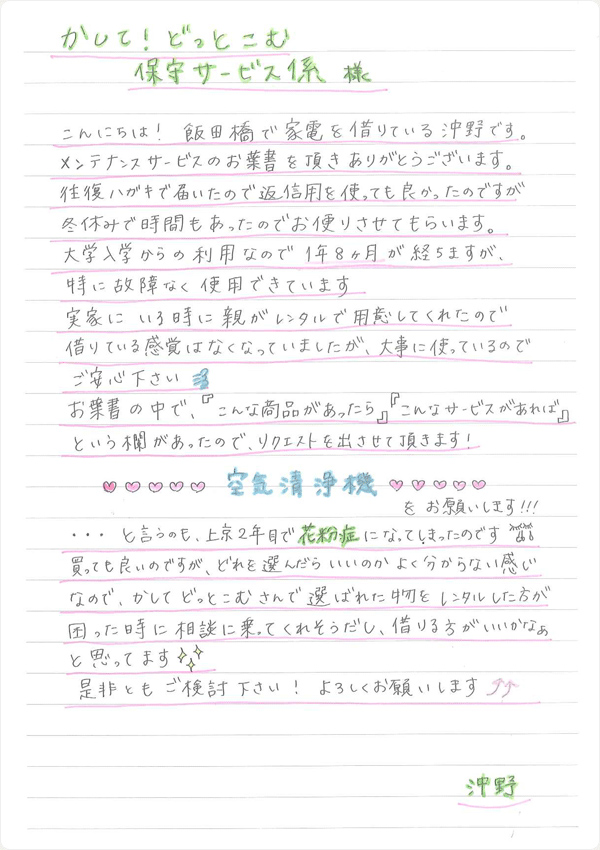 かして！どっとこむ
保守サービス係 様
こんにちは！ 飯田橋で家電を借りている沖野です。
メンテナンスサービスのお葉書を頂きありがとうございます。
往復ハガキで届いたので返信用を使っても良かったのですが
冬休みで時間もあったのでお便りさせてもらいます。
大学入学からの利用なので1年8ヶ月が経ちますが、
特に故障なく使用できています
実家にいる時に親がレンタルで用意してくれたので
借りている感覚はなくなっていましたが、大事に使っているので
ご安心下さい
お葉書の中で、『こんな商品があったら』『こんなサービスがあれば』
という欄があったので、リクエストを出させて頂きます！
♡♡♡♡♡ 空気清浄機 ♡♡♡♡♡
をお願いします!!!
・・・と言うのも、上京2年目で花粉症になってしまったのです
買っても良いのですが、どれを選んだらいいのかよく分からない感じ
なので、かしてどっとこむさんで選ばれた物をレンタルした方が
困った時に相談に乗ってくれそうだし、借りる方がいいかなぁ
と思ってます
是非ともご検討下さい！ よろしくお願いします
沖野